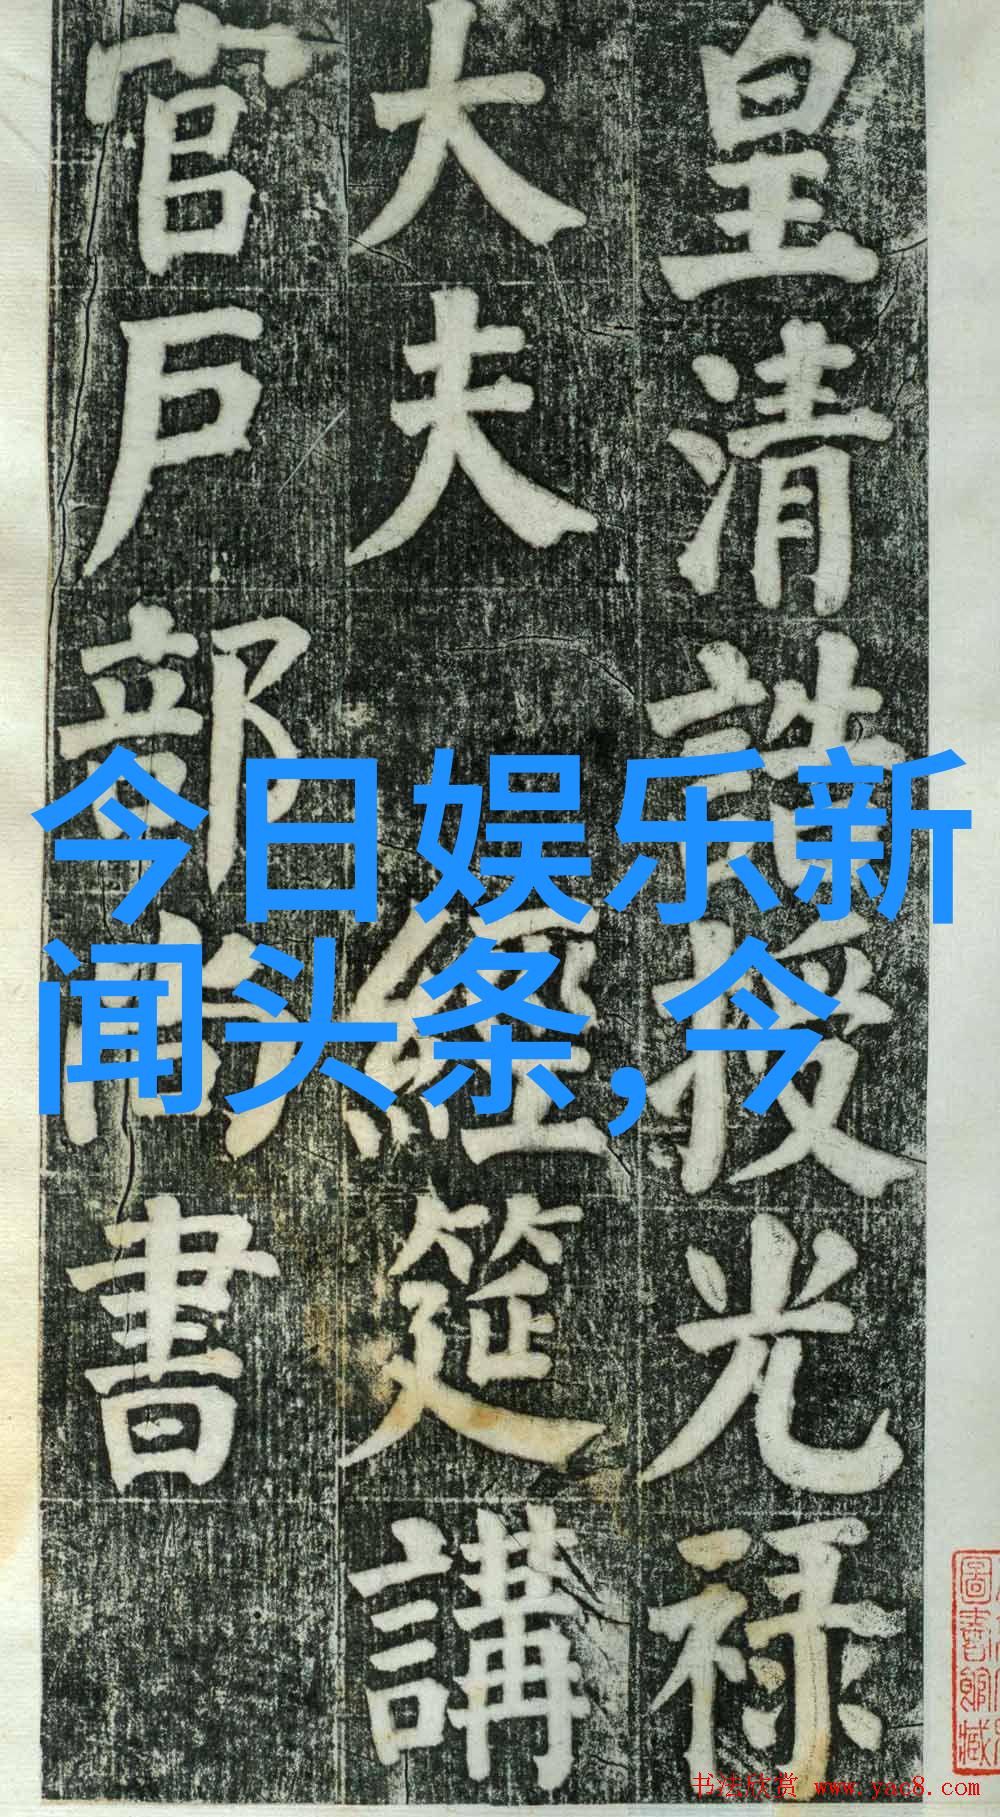 皇清誥授光禄
大夫 經筵講
官戶部尚書
今日娱乐新
闻头条,今
圖書館藏
书法欣赏 www.yac8.com